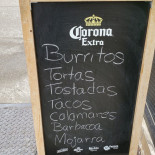 Corona
Extra
Burritos
Tortas
Tostadas
Tacos
Calamares
Barbacoa
Mojarra